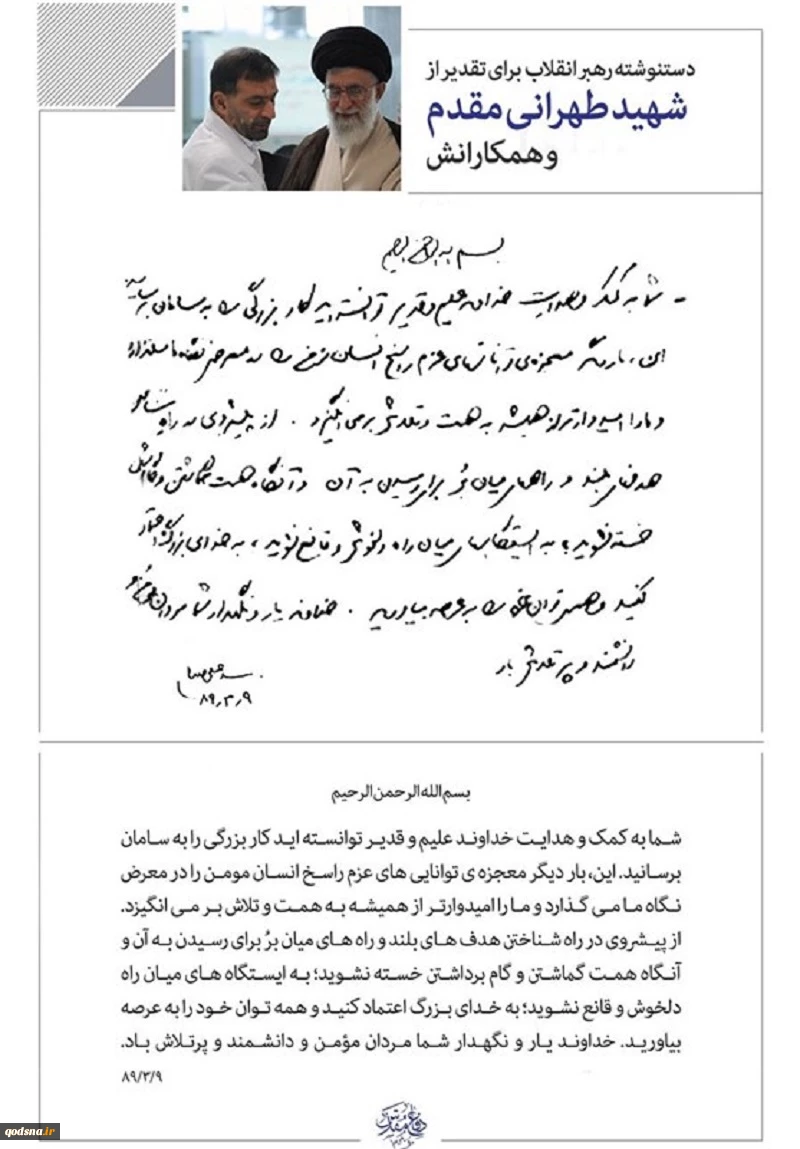 دستنوشته رهبر انقلاب برای تقدیر از
شهید طهرانی مقدم
و همکارانش
بسم الله الرحمن الرحیم
- شما به کمک و هدایت خداوند علیم و قدیر توانسته‌اید کار بزرگی را به سامان برسانید
این، بار دیگر معجزه‌ی توانائی‌های عزم راسخ انسان مؤمن را در معرض نگاه ما میگذارد
و ما را امیدوارتر از همیشه به همت و تلاش برمی‌انگیزد. از پیشروی در راه شناختن
هدفهای بلند و راههای میان‌بُر برای رسیدن به آن و آنگاه همت گماشتن و گام برداشتن
خسته نشوید؛ به ایستگاههای میان راه دلخوش و قانع نشوید، به خدای بزرگ اعتماد
کنید و همه‌ی توان خود را به عرصه بیاورید. خداوند یار و نگهدار شما مردان مؤمن و
دانشمند و پر تلاش باد
۸۹٫۳٫۹
بسم الله الرحمن الرحیم
شما به کمک و هدایت خداوند علیم و قدیر توانسته اید کار بزرگی را به سامان
برسانید. این، بار دیگر معجزه ی توانایی های عزم راسخ انسان مومن را در معرض
نگاه ما می گذارد و ما را امیدوارتر از همیشه به همت و تلاش بر می انگیزد.
از پیشروی در راه شناختن هدف های بلند و راه های میان برُ برای رسیدن به آن و
آنگاه همت گماشتن و گام برداشتن خسته نشوید؛ به ایستگاه های میان راه
دلخوش و قانع نشوید؛ به خدای بزرگ اعتماد کنید و همه توان خود را به عرصه
بیاورید. خداوند یار و نگهدار شما مردان مؤمن و دانشمند و پرتلاش باد.
۸۹/۳/۹
qodsna.ir